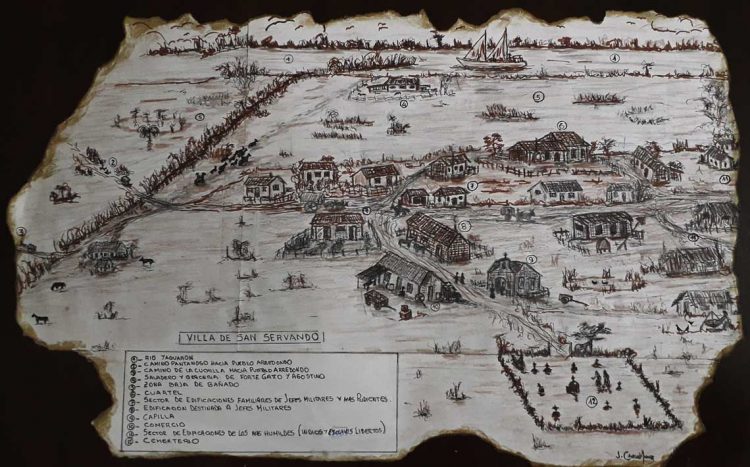 VILLA DE SAN SERVANDO
1- RIO YAGUARON
2- CAMINO PANTANOSO HACIA PUEBLO ARREDONDO
3- CAMINO DE LA CUCHILLA HACIA PUEBLO ARREDONDO
4- SALADERO Y GRASERIA DE PORTE GATO Y AGOSTINO
5- ZONA BAJA DE BAÑADO
6- CUARTEL
7- SECTOR DE EDIFICACIONES FAMILIARES DE JEFES MILITARES Y MAS PUDIENTES.
8- EDIFICACION DESTINADA A JEFES MILITARES
9- CAPILLA
10- COMERCIO
11- SECTOR DE EDIFICACIONES DE LOS MAS HUMILDES (INDIOS Y LIBERTOS)
12- CEMENTERIO